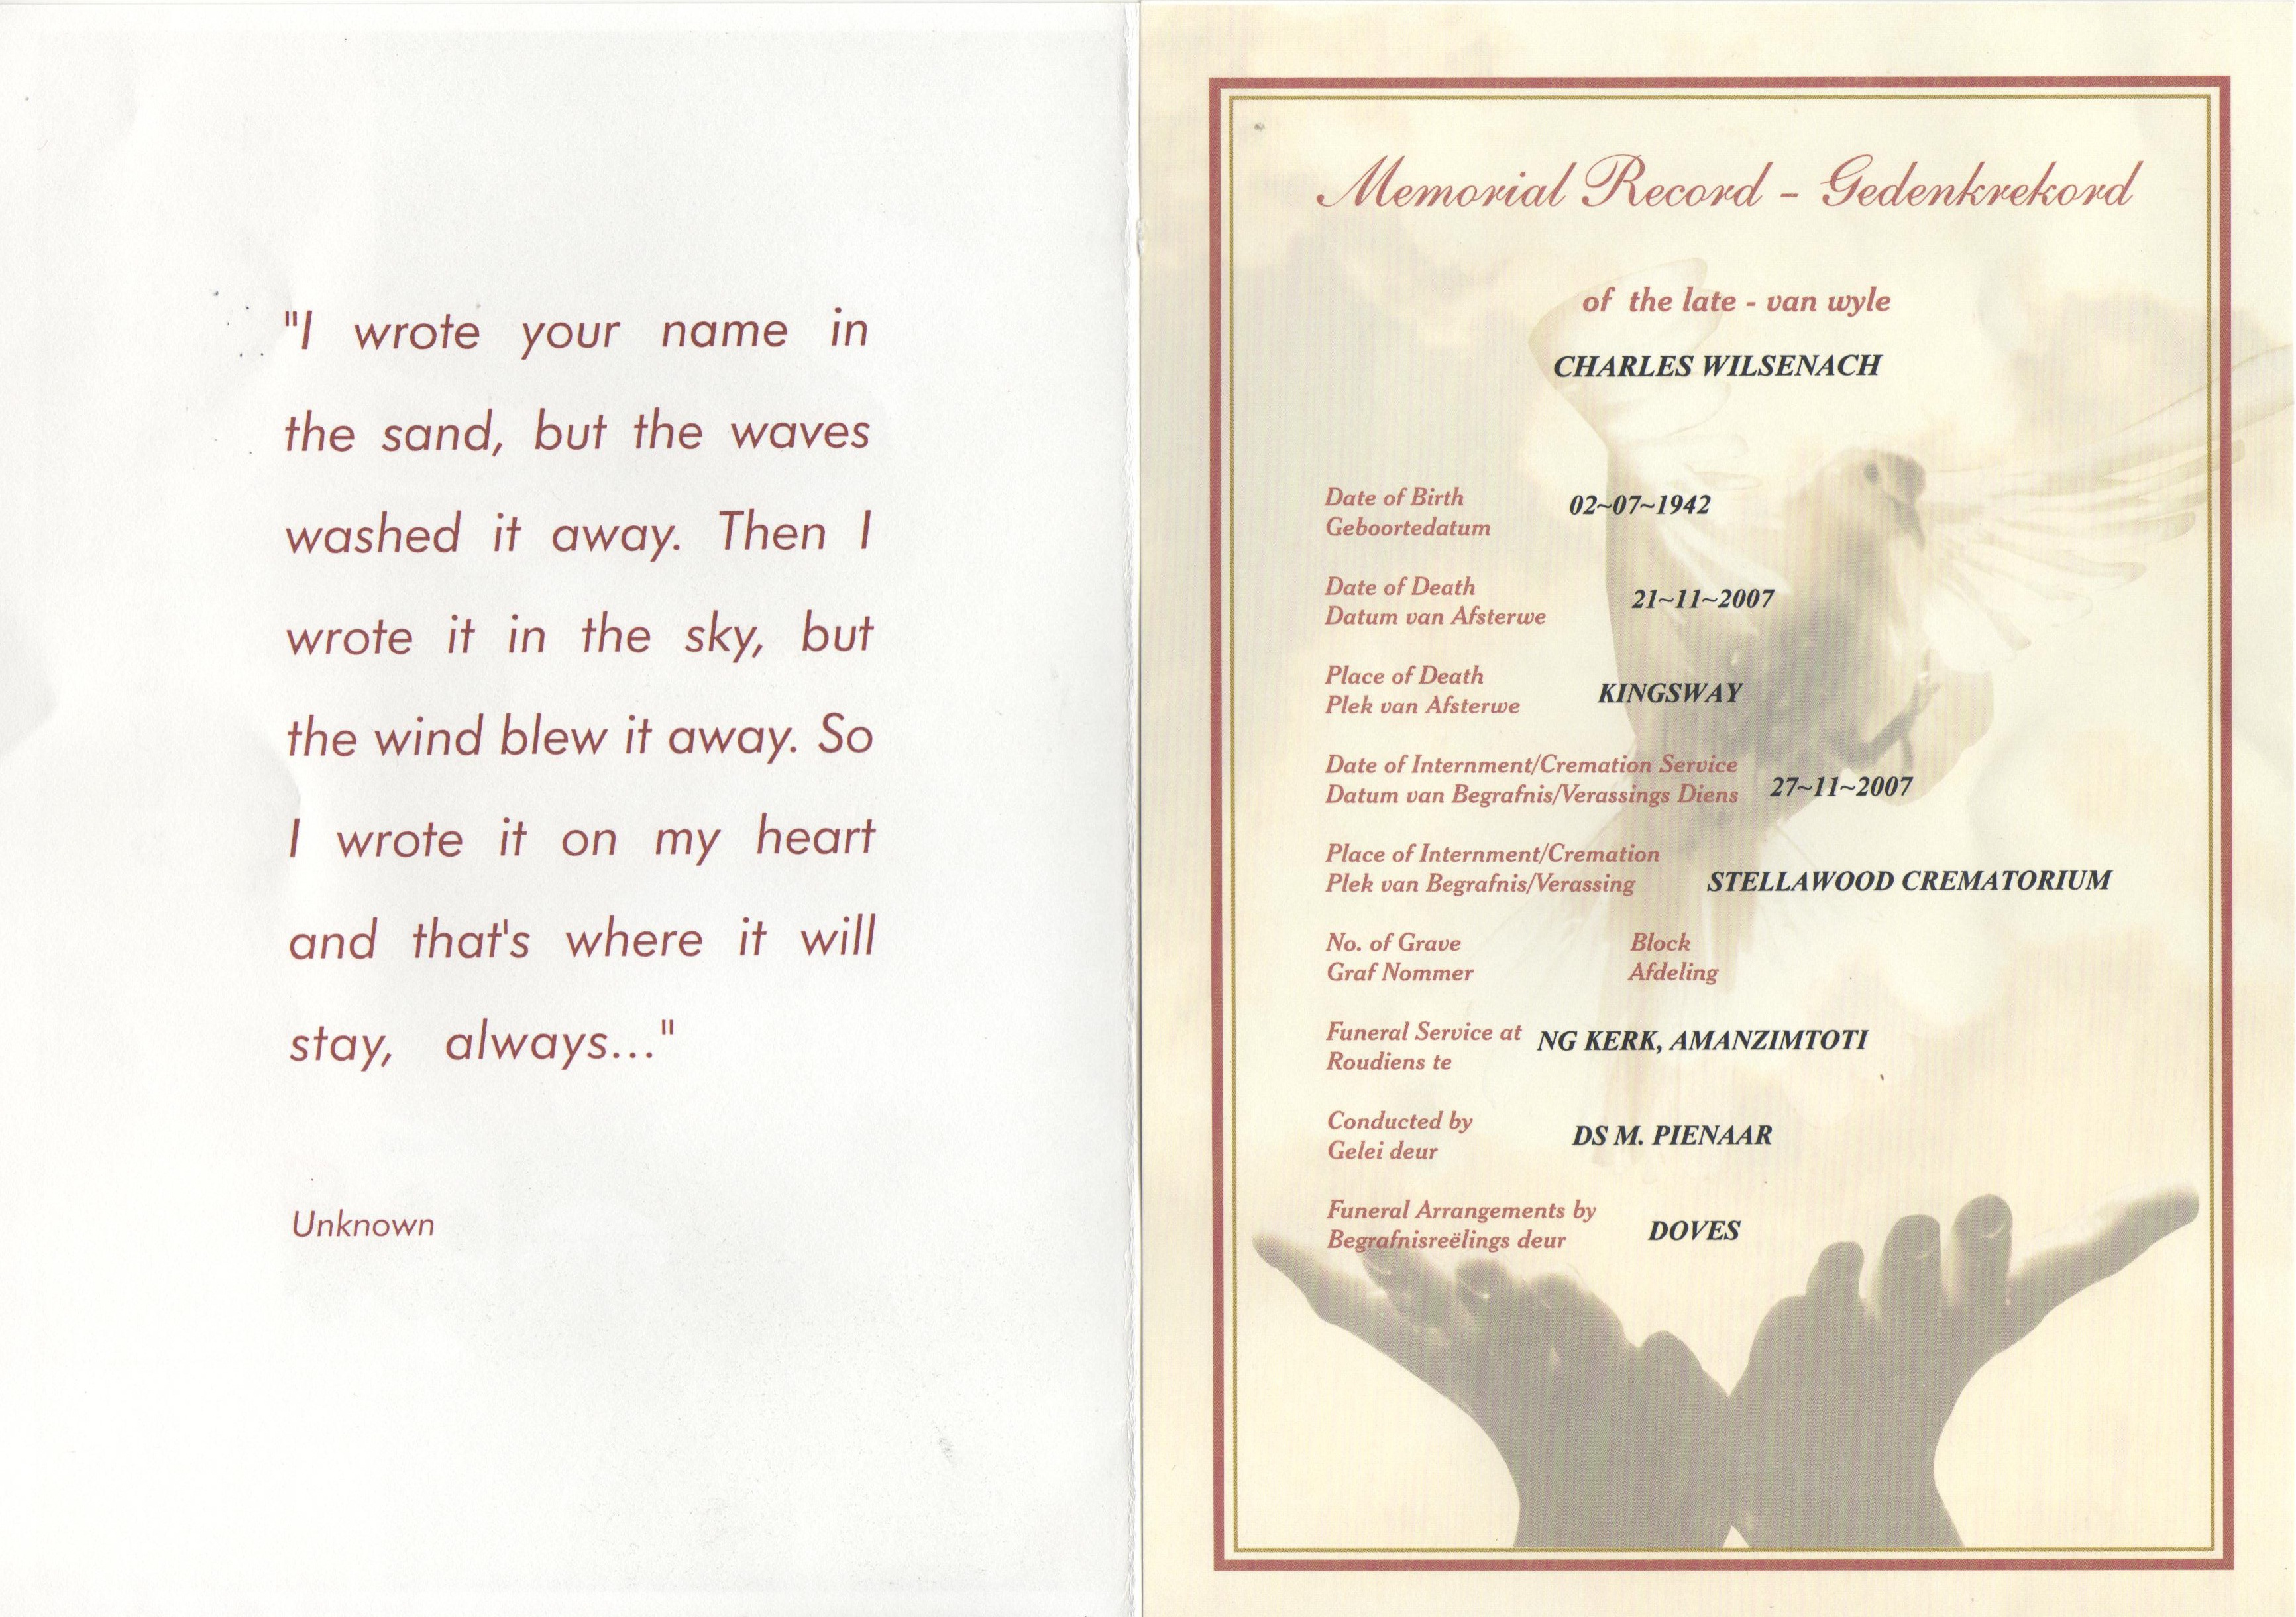 "I wrote your name in
the sand, but the waves
washed it away. Then I
wrote it in the sky, but
the wind blew it away. So
I wrote it on my heart
and that's where it will
stay, always..."
Unknown
Memorial Record - Gedenkrekord
of the late - van wyle
CHARLES WILSENACH
Date of Birth 02~07~1942
Geboortedatum
Date of Death 21~11~2007
Datum van Afsterwe
Place of Death KINGSWAY
Plek van Afsterwe
Date of Internment/Cremation Service
Datum van Begrafnis/Verassings Diens 27~11~2007
Place of Internment/Cremation
Plek van Begrafnis/Verassing STELLAWOOD CREMATORIUM
No. of Grave Block
Graf Nommer Afdeling
Funeral Service at NG KERK, AMANZIMTOTI
Roudiens te
Conducted by DS M. PIENAAR
Gelei deur
Funeral Arrangements by DOVES
Begrafnisreëlings deur